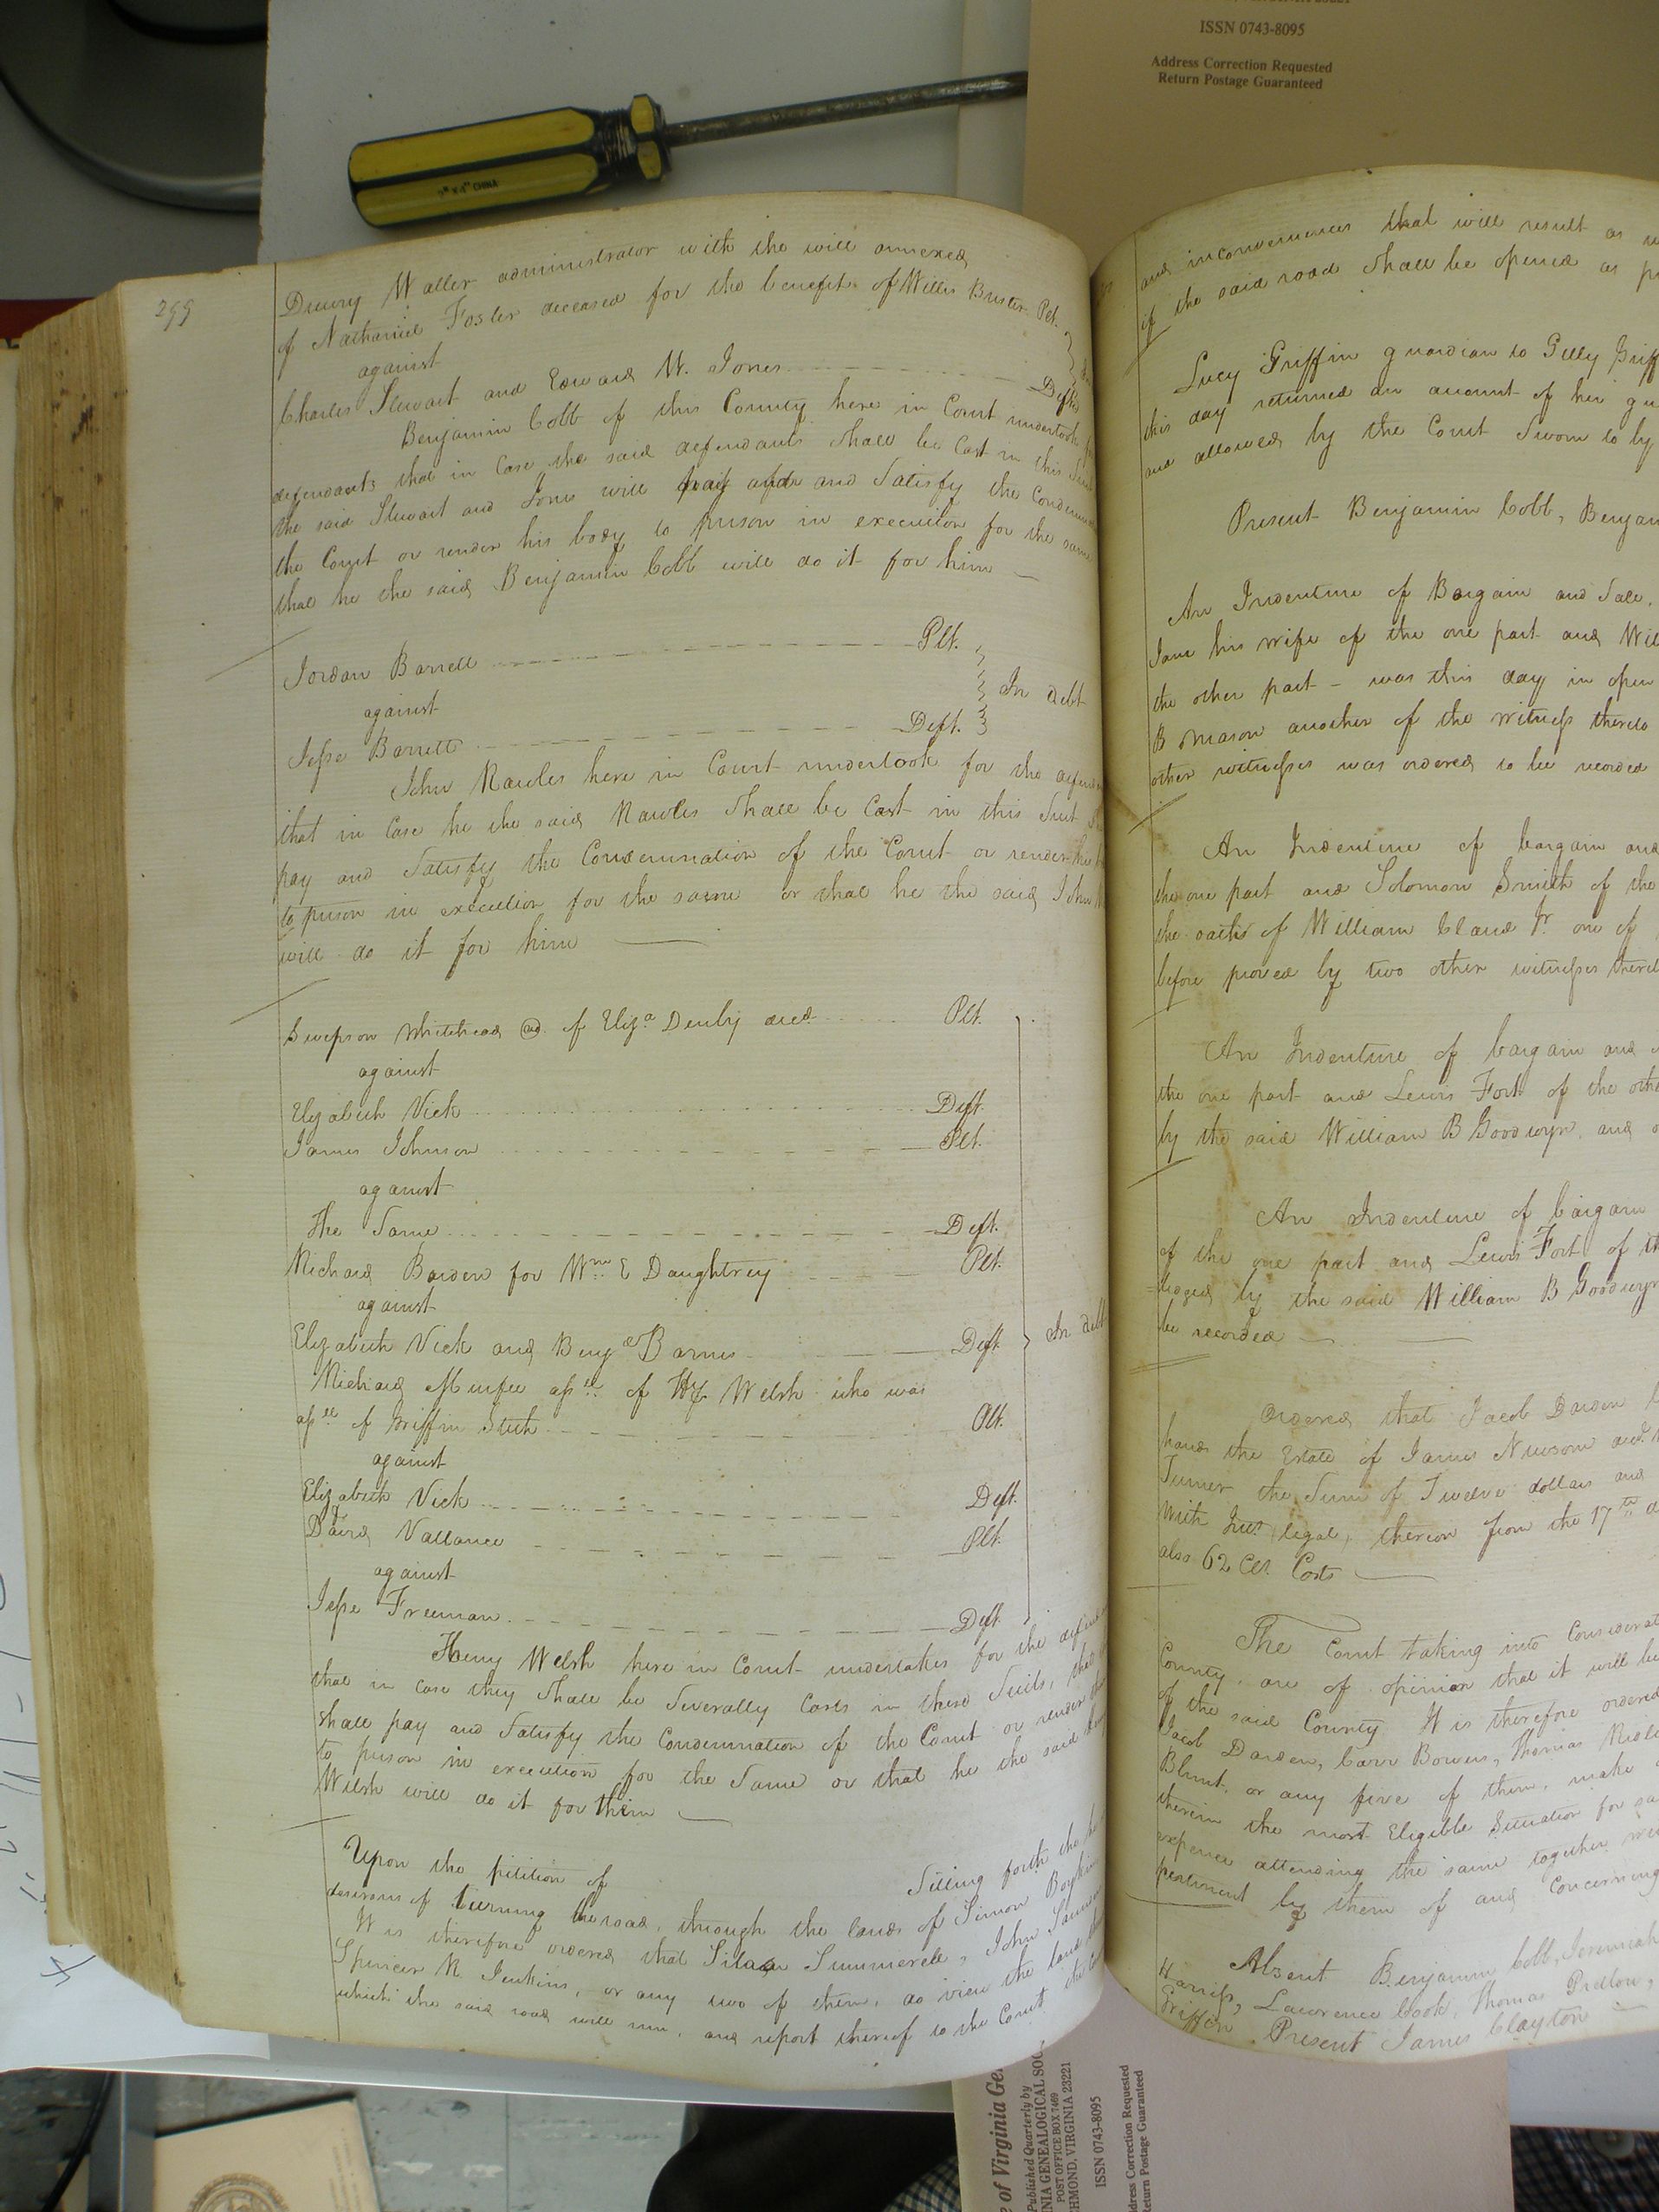 ISSN 0743-8095
Address Correction Requested
Return Postage Guaranteed
CHINA
299
Drewry Waller administrator with the will annexed
of Nathaniel Foster deceased for the benefit of Willis Buster Plt.
against
Charles Stewart and Edward W. Jones Defts
Benjamin Cobb of this County here in Court undertook
defendants that in Case the said defendants shall be Cast in this
the said Stewart and Jones will pay and Satisfy the
the Court or render his body to prison in execution for the same
that he the said Benjamin Cobb will do it for him
Jordan Barrett Plt.
against
In debt
Jesse Barrett Deft.
John Rawles here in Court undertook for the
that in Case he the said Rawles Shall be Cast in this Suit
pay and Satisfy the Condemnation of the Court or render
to prison in execution for the same or that he the said John
will do it for him
Swepson Whitehead ad. of Eliza Denby decd Plt.
against
Elizabeth Vick Deft.
James Johnson Plt.
against
The Same Deft.
Richard Barden for Wm E Daughtrey Plt.
against
Elizabeth Vick and Benja Barnes Deft
In debt
Richard Murfee assee of Hy Welsh who was
assee of Griffin Stith Plt.
against
Elizabeth Vick Deft.
David Vallance Plt.
against
Jesse Freeman Deft
Henry Welsh here in Court undertakes for the
that in case they Shall be Severally Casts in these Suits,
shall pay and Satisfy the Condemnation of the Court or render
to prison in execution for the Same or that he the said
Welsh will do it for them
Upon the petition of Setting forth
desirous of turning the road, through the lands of Simon Boykin
It is therefore ordered that Silas Summerell, John
Spencer R. Jenkins, or any two of them, do view the land
which the said road will run, and report thereof to the Court
and inconveniences that will result as
if the said road Shall be opened as
Lucy Griffin guardian to Gilly
this day returned an account of her
and allowed by the Court Sworn to by
Present Benjamin Cobb,
An Indenture of Bargain and Sale,
Jane his wife of the one part and
the other part - was this day in open
B Mason another of the witness thereto
other witnesses was ordered to be recorded
An Indenture of bargain and
the one part and Solomon Smith of the
the oaths of William Bland Jr. one of
before proved by two other witnesses
An Indenture of bargain and
the one part and Lewis Fort of the
by the said William B Goodwyn, and
An Indenture of bargain
of the one part and Lewis Fort of
by the said William B Goodwyn
be recorded
Ordered that Jacob Darden
hands the Estate of James Newsom decd
Turner the Sum of Twelve dollars and
With Int legal, thereon from the 17th
also 62 Cts. Costs
The Court taking into
County, are of opinion that it will be
of the said County It is therefore ordered
Jacob Darden, Carr Bowers, Thomas
Blunt, or any five of them, make
therein the most Eligible Situation for
expence attending the same together
pertinent by them of and Concerning
Absent Benjamin Cobb, Jeremiah
Harriss, Lawrence Cook, Thomas Pretlow,
Griffin Present James Clayton
of Virginia
Published Quarterly by
GENEALOGICAL
POST OFFICE BOX 7469
VIRGINIA 23221
ISSN 0743-8095
Address Correction Requested
Return Postage Guaranteed